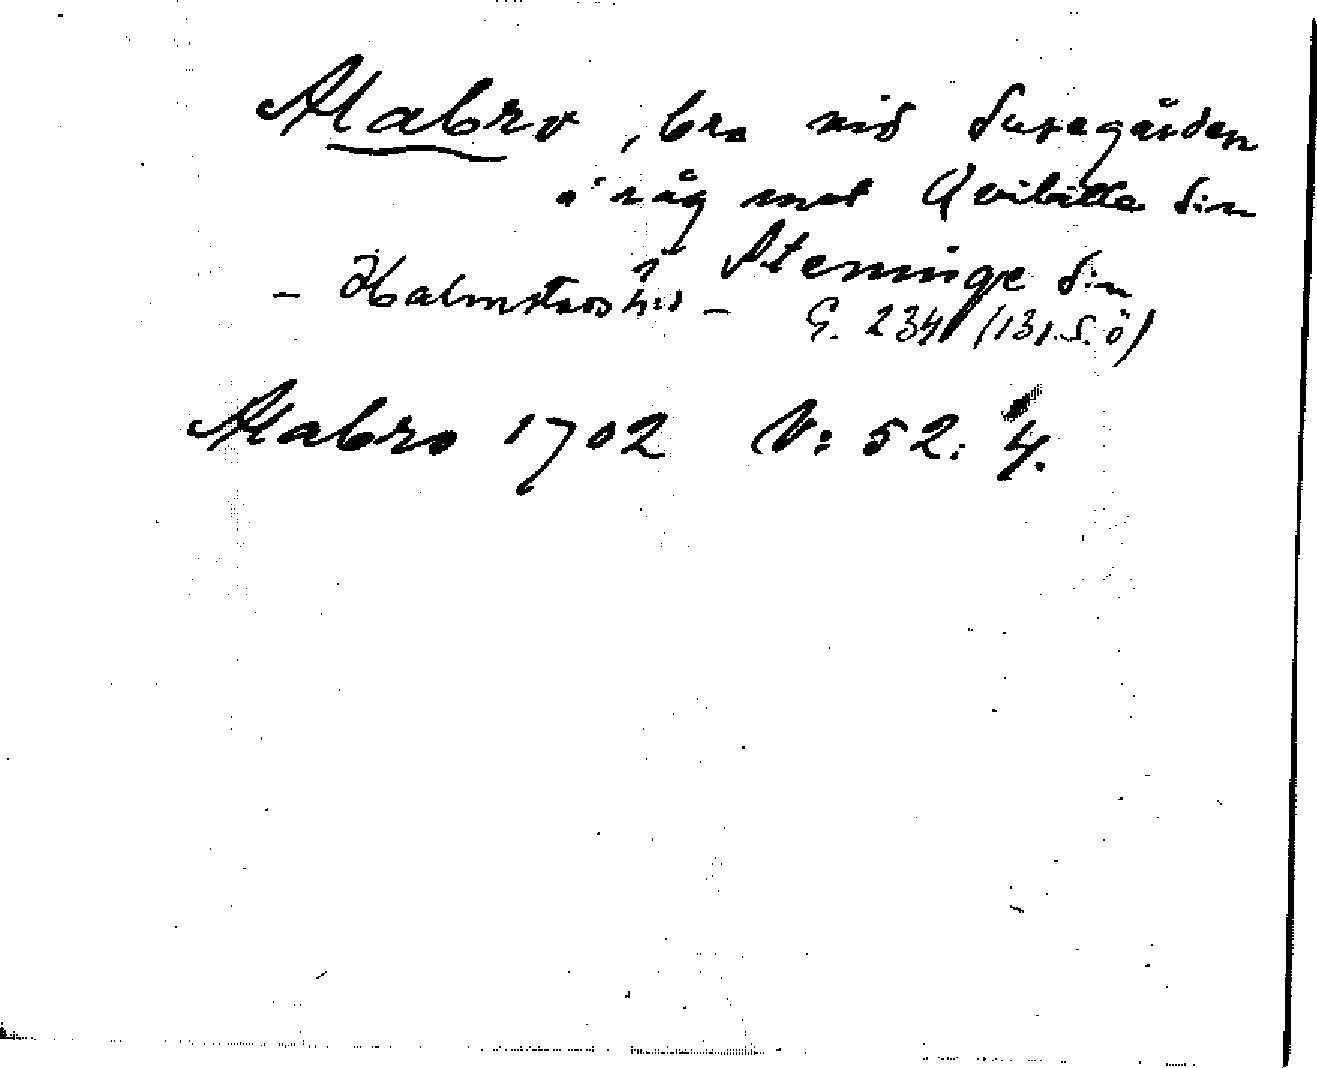 Mabro, bro vid Suregården
i råg mot Qvibille sn
Steninge sn
- Halmstads hd - G. 234 (131. S. Ö)
Mabro 1702 V: 52: 4.